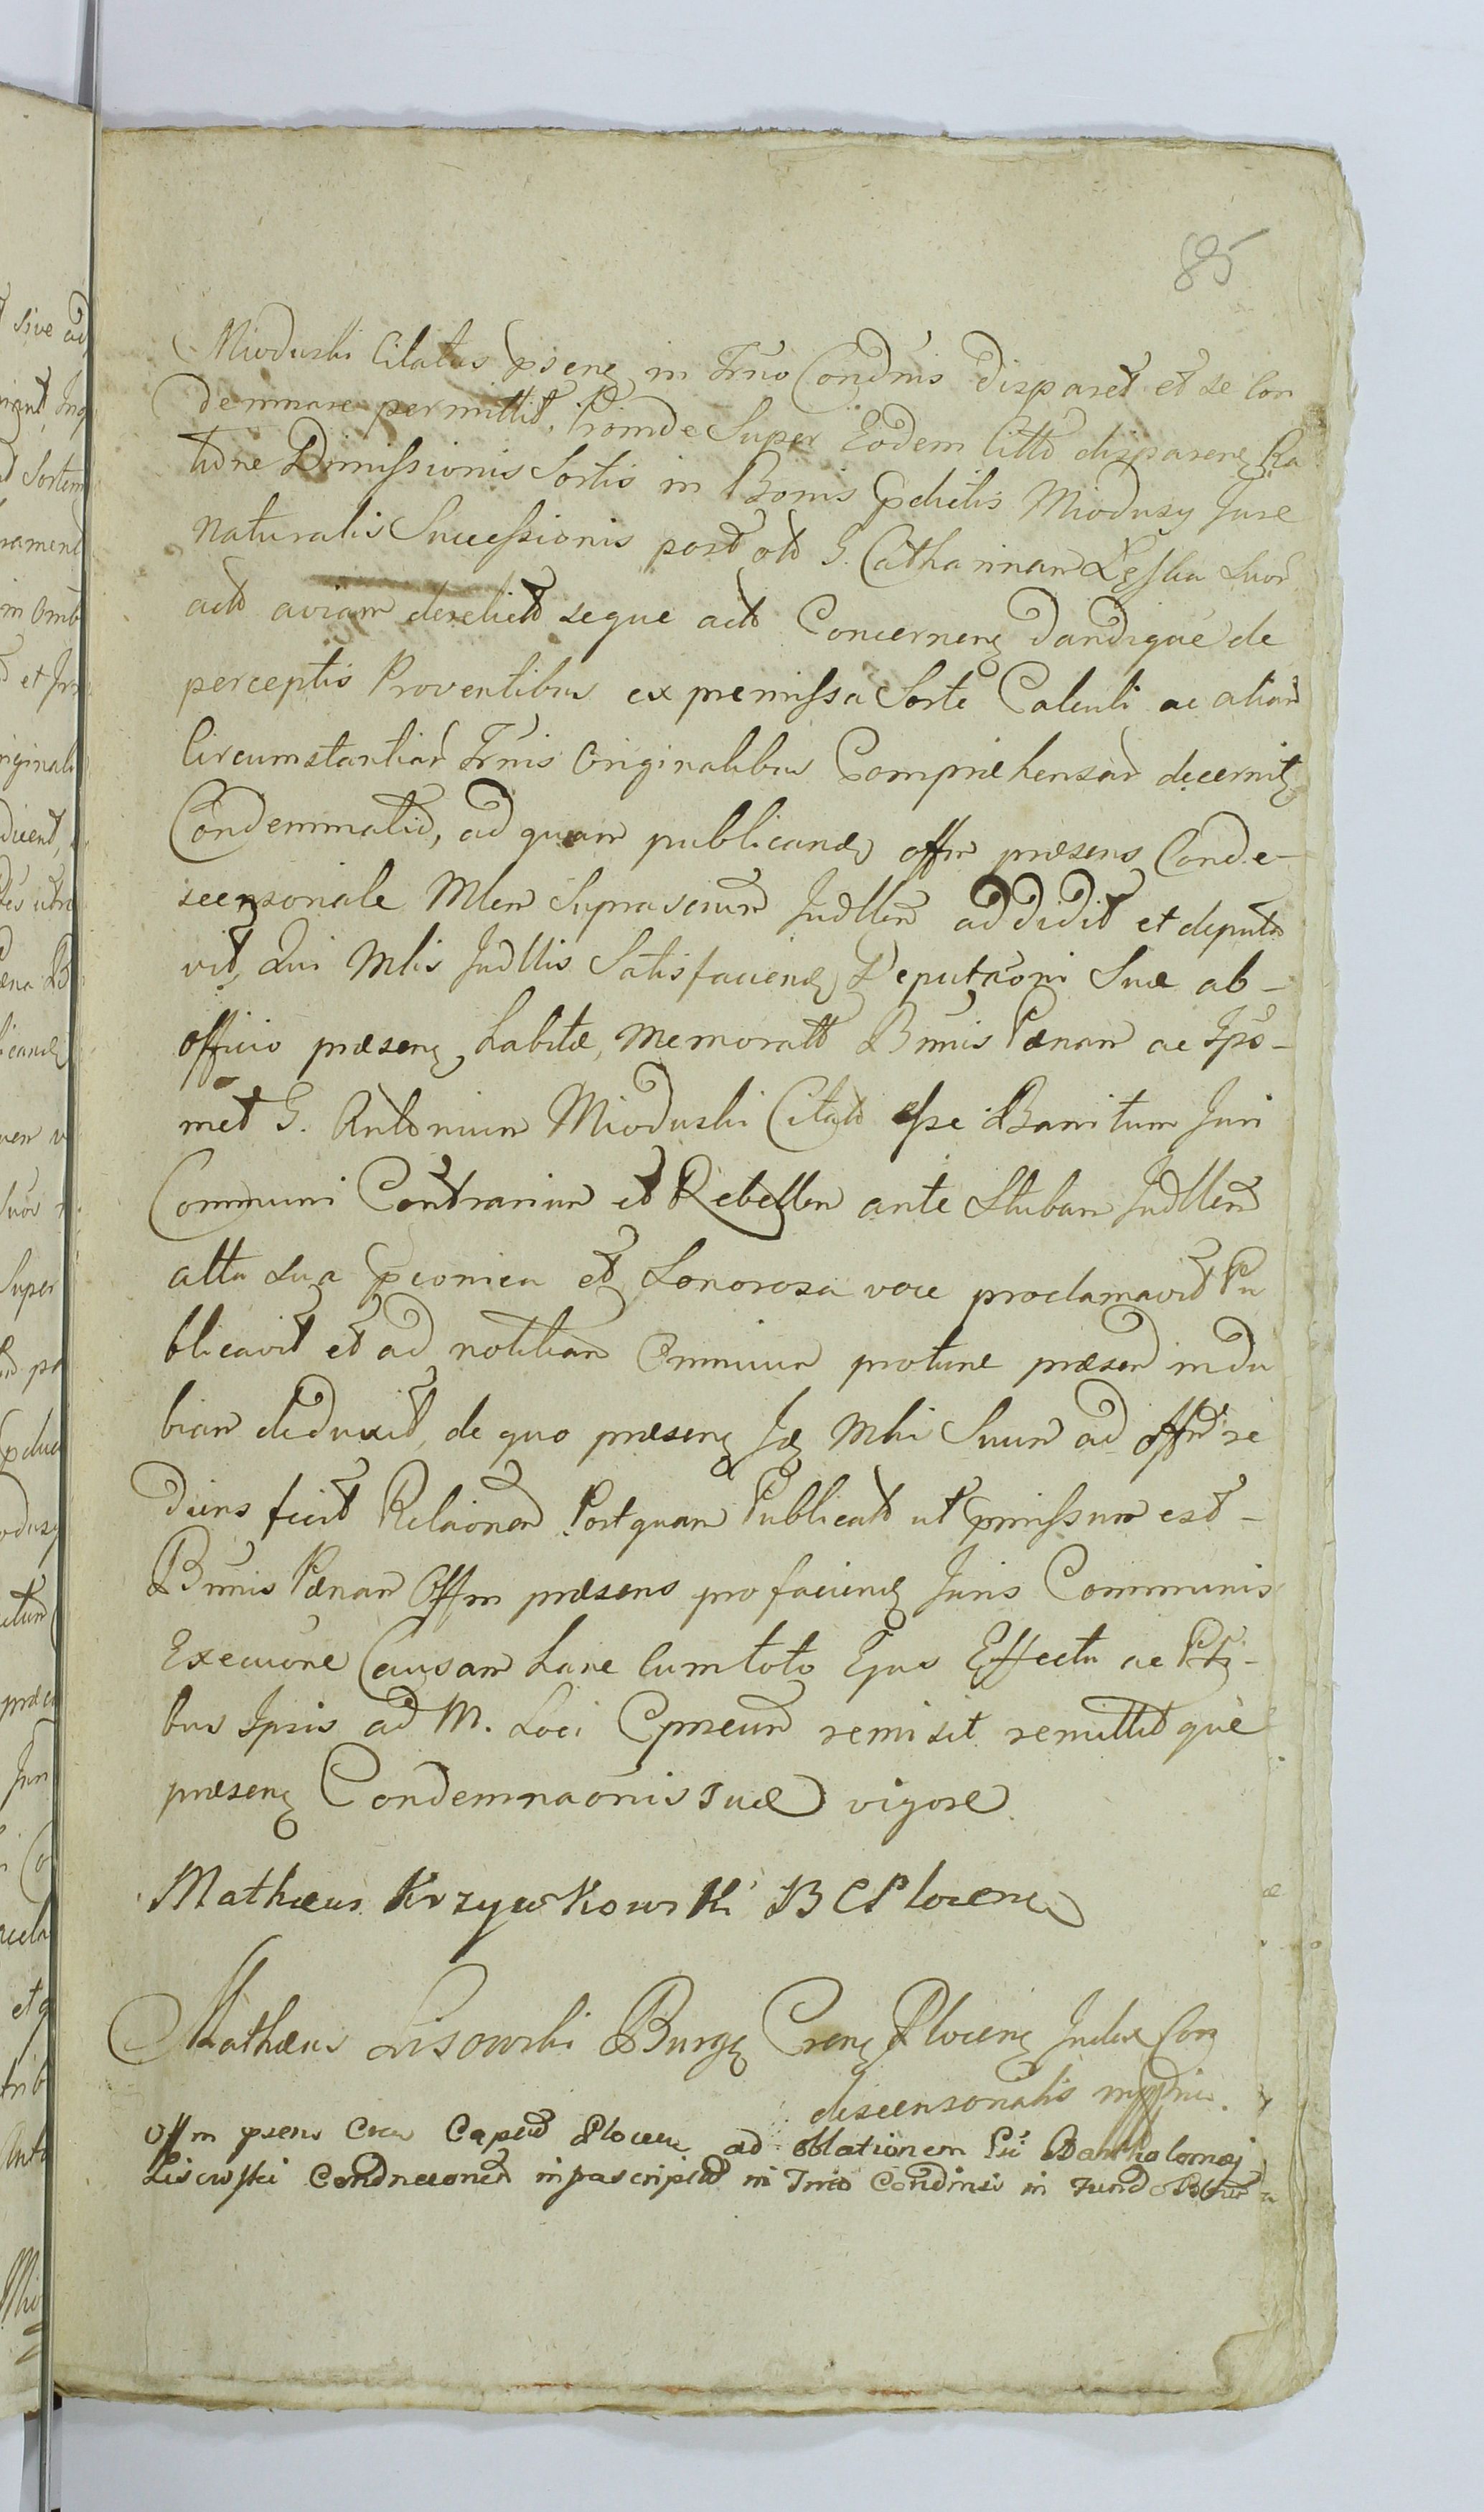 85
Miduski Citatus pseng in Trno Condnis disparet et se Con
demnare permittit, Proinde Super Eodem Citto disparene Ra
tione Dimissionis Sortis in Bonis Miodusy Jure
Naturalis Successionis post G. Catharinam suor
act aviam derelict seque act Concerneng dandique de
perceptis Proventibus ex premissa Sorte Calculi ac aliar
Circumstantiar Trnis Originalibus Compraehensar decernit
Condemnatio, ad quam publicand offm praesens Conde-
scensonale Mlem Suprascrium Judllem addidit et deputa
vit, Qui Mlis Judllis Satisfaciend Deputaoni Suae ab-
officio praeseng habitae, memoratt Bnnis Paenam ac Ipso-
met G. Antonium Mioduski Citatt esse Banitum Juri
Communi Contrarium et Rebellem ante Stubam Judllem
alta sua et Sonorosa voce proclamavit Pu
blicavit et ad notitiam Omnium protunc praesen indu
biam deduxit, de quo praeseng Mhi Suum ad Offm re
diens fecit Relaonem Postquam Publicatt ut pmissum est-
Bnnis Paenam Offm praesens pro faciend Juris Communis
Execuione Causam hanc Cum toto Ejus Effectu ac Pti-
bus Ipsis ad M. Loci remisit remittit que
praeseng Condemnaonis suae vigore
Mathaeus Krzywkowski B C Plocens
Mathaeus Lisowski Burg Creng Ploceng Judex Con
descensonalis mppria.
Offm psens Cren Capeus Plocen ad oblationem Bartholomaei
Liscwski in Trno Condnsi in fund